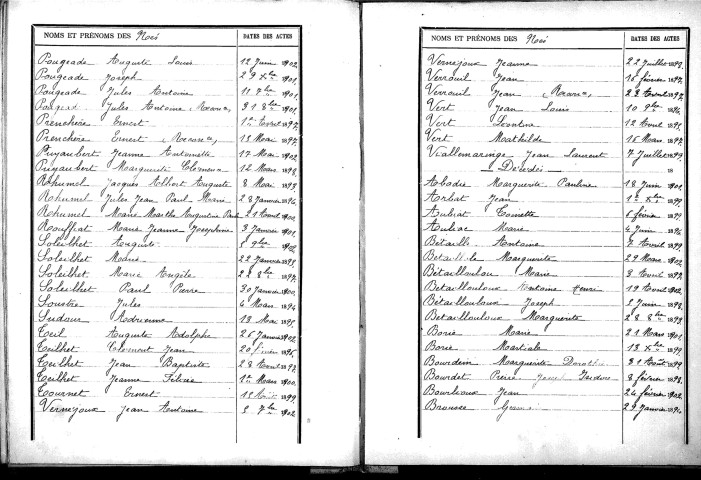 NOMS ET PRÉNOMS DES Nés DATES DES ACTES
Pougeade Auguste Louis 12 Juin 1902
Pougeade Joseph 29 Xbre 1901
Pougeade Jules Antoine 11 7bre 1901
Jules Antoine 31 8bre 1901
Prenchère Ernest 1er Avril 1897
Prenchère Ernest 15 Mai 1897
Puyaubert Jeanne Antoinette 17 Mai 1902
Puyaubert Marguerite 12 Mars 1898
Rohumel Jacques Albert Auguste 8 Mai 1899
Rohumel Jules Jean Paul Marie 28 Janvier 1896
Rohumel Marie Marthe Augustine Paule 21 Avril 1900
Rouffiat Marie Jeanne Josephine 3 Janvier 1901
Soleilhet Auguste 9bre 1902
Soleilhet Marie 22 Janvier 1899
Soleilhet Marie Angèle 28 8bre 1897
Soleilhet Paul Pierre 30 Janvier 1900
Soustre Jules 4 Mars 1894
Sudour 13 Mai 1895
Teil Auguste Adolphe 26 Janvier 1902
Teilhet Clément Jean 20 février 1896
Teilhet Jean Baptiste 28 Avril 1897
Teilhet Jeanne Félicie 1er Mars 1900
Tournet Ernest 1899
Vernejoux Jean Antoine 7bre 1902
NOMS ET PRÉNOMS DES Nés DATES DES ACTES
Vernejoux Jeanne 22 Juillet 1893
Verrouil Jean 16 février 1897
Verrouil Jean 28 Avril 1897
Vert Jean Louis 10 9bre 1896
Vert 12 Avril 1895
Vert Mathilde 16 Mars 1897
Viallemaringe Jean Laurent 7 Juillet 1899
Décédés 18
Abadie Marguerite Pauline 18 Juin 1901
Arbat Jean 1er Xbre 1899
Auliat Toinette 6 février 1895
Auliac Marie 4 Juin 1896
Bétaille Antoine 7 Avril 1899
Bétaille Marguerite 29 Mars 1902
Bétailloulou Marie 8 Avril 1897
Bétaillouloux Antoine Henri 19 Avril 1902
Bétaillouloux Joseph 2 Juin 1898
Bétaillouloux Marguerite 28 8bre 1899
Borie Marie 21 Mars 1901
Borie Martiale 13 Xbre 1899
Bourdein Marguerite 31 Août 1899
Bourdet Pierre Isidore 8 février 1898
Bourlioux Jean 24 février 1902
Brousse 29 Janvier 1894